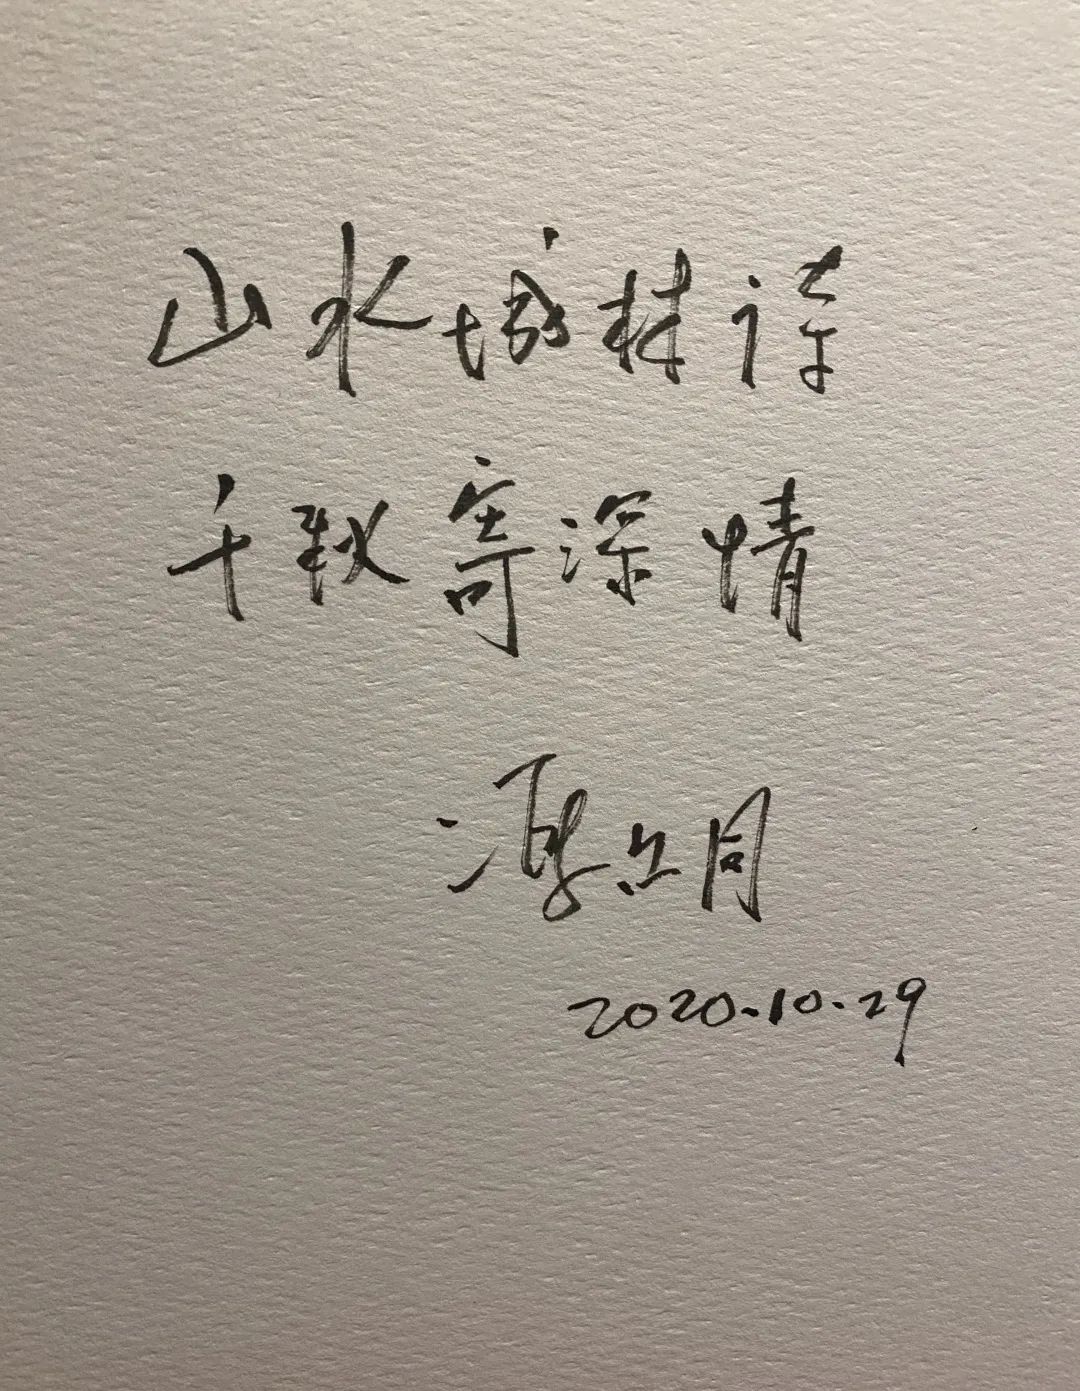 山水城林诗
千秋寄深情
2020.10.29